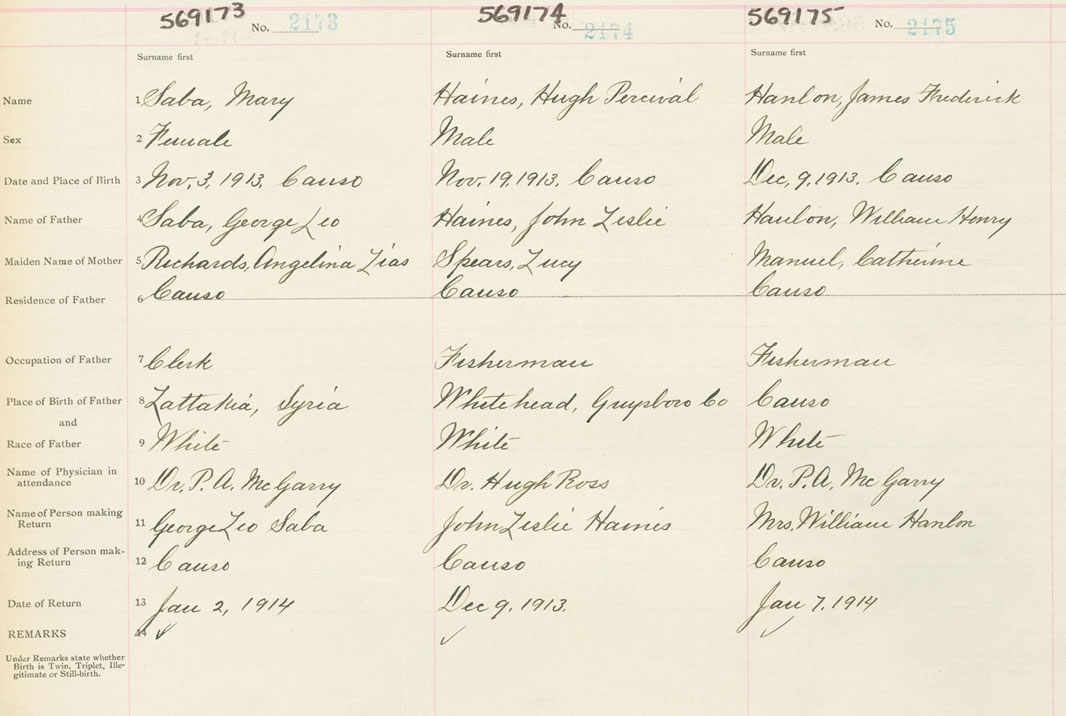 569173 569174 569175
No. 2173 No. 2174 No. 2175
Surname first Surname first Surname first
Name 1 Saba, Mary Haines, Hugh Percival Hanlon, James Frederick
Sex 2 Female Male Male
Date and Place of Birth 3 Nov. 3, 1913. Canso Nov. 19, 1913. Canso Dec, 9, 1913. Canso
Name of Father 4 Saba, George Leo Haines, John Leslie Hanlon, William Henry
Maiden Name of Mother 5 Richards, Angelina Lias Spears, Lucy Manuel, Catherine
Residence of Father 6 Canso Canso Canso
Occupation of Father 7 Clerk Fisherman Fisherman
Place of Birth of Father 8 Lattakia, Syria Whitehead, Guysboro Co Canso
and
Race of Father 9 White White White
Name of Physician in
attendance 10 Dr. P. A. McGarry Dr. Hugh Ross Dr. P. A. McGarry
Name of Person making
Return 11 George Leo Saba John Leslie Haines Mrs. William Hanlon
Address of Person mak-
ing Return 12 Canso Canso Canso
Date of Return 13 Jan 2, 1914 Dec 9, 1913. Jan 7, 1914
REMARKS 14 ✓ ✓ ✓
Under Remarks state whether
Birth is Twin, Triplet, Ille-
gitimate or Still-birth.